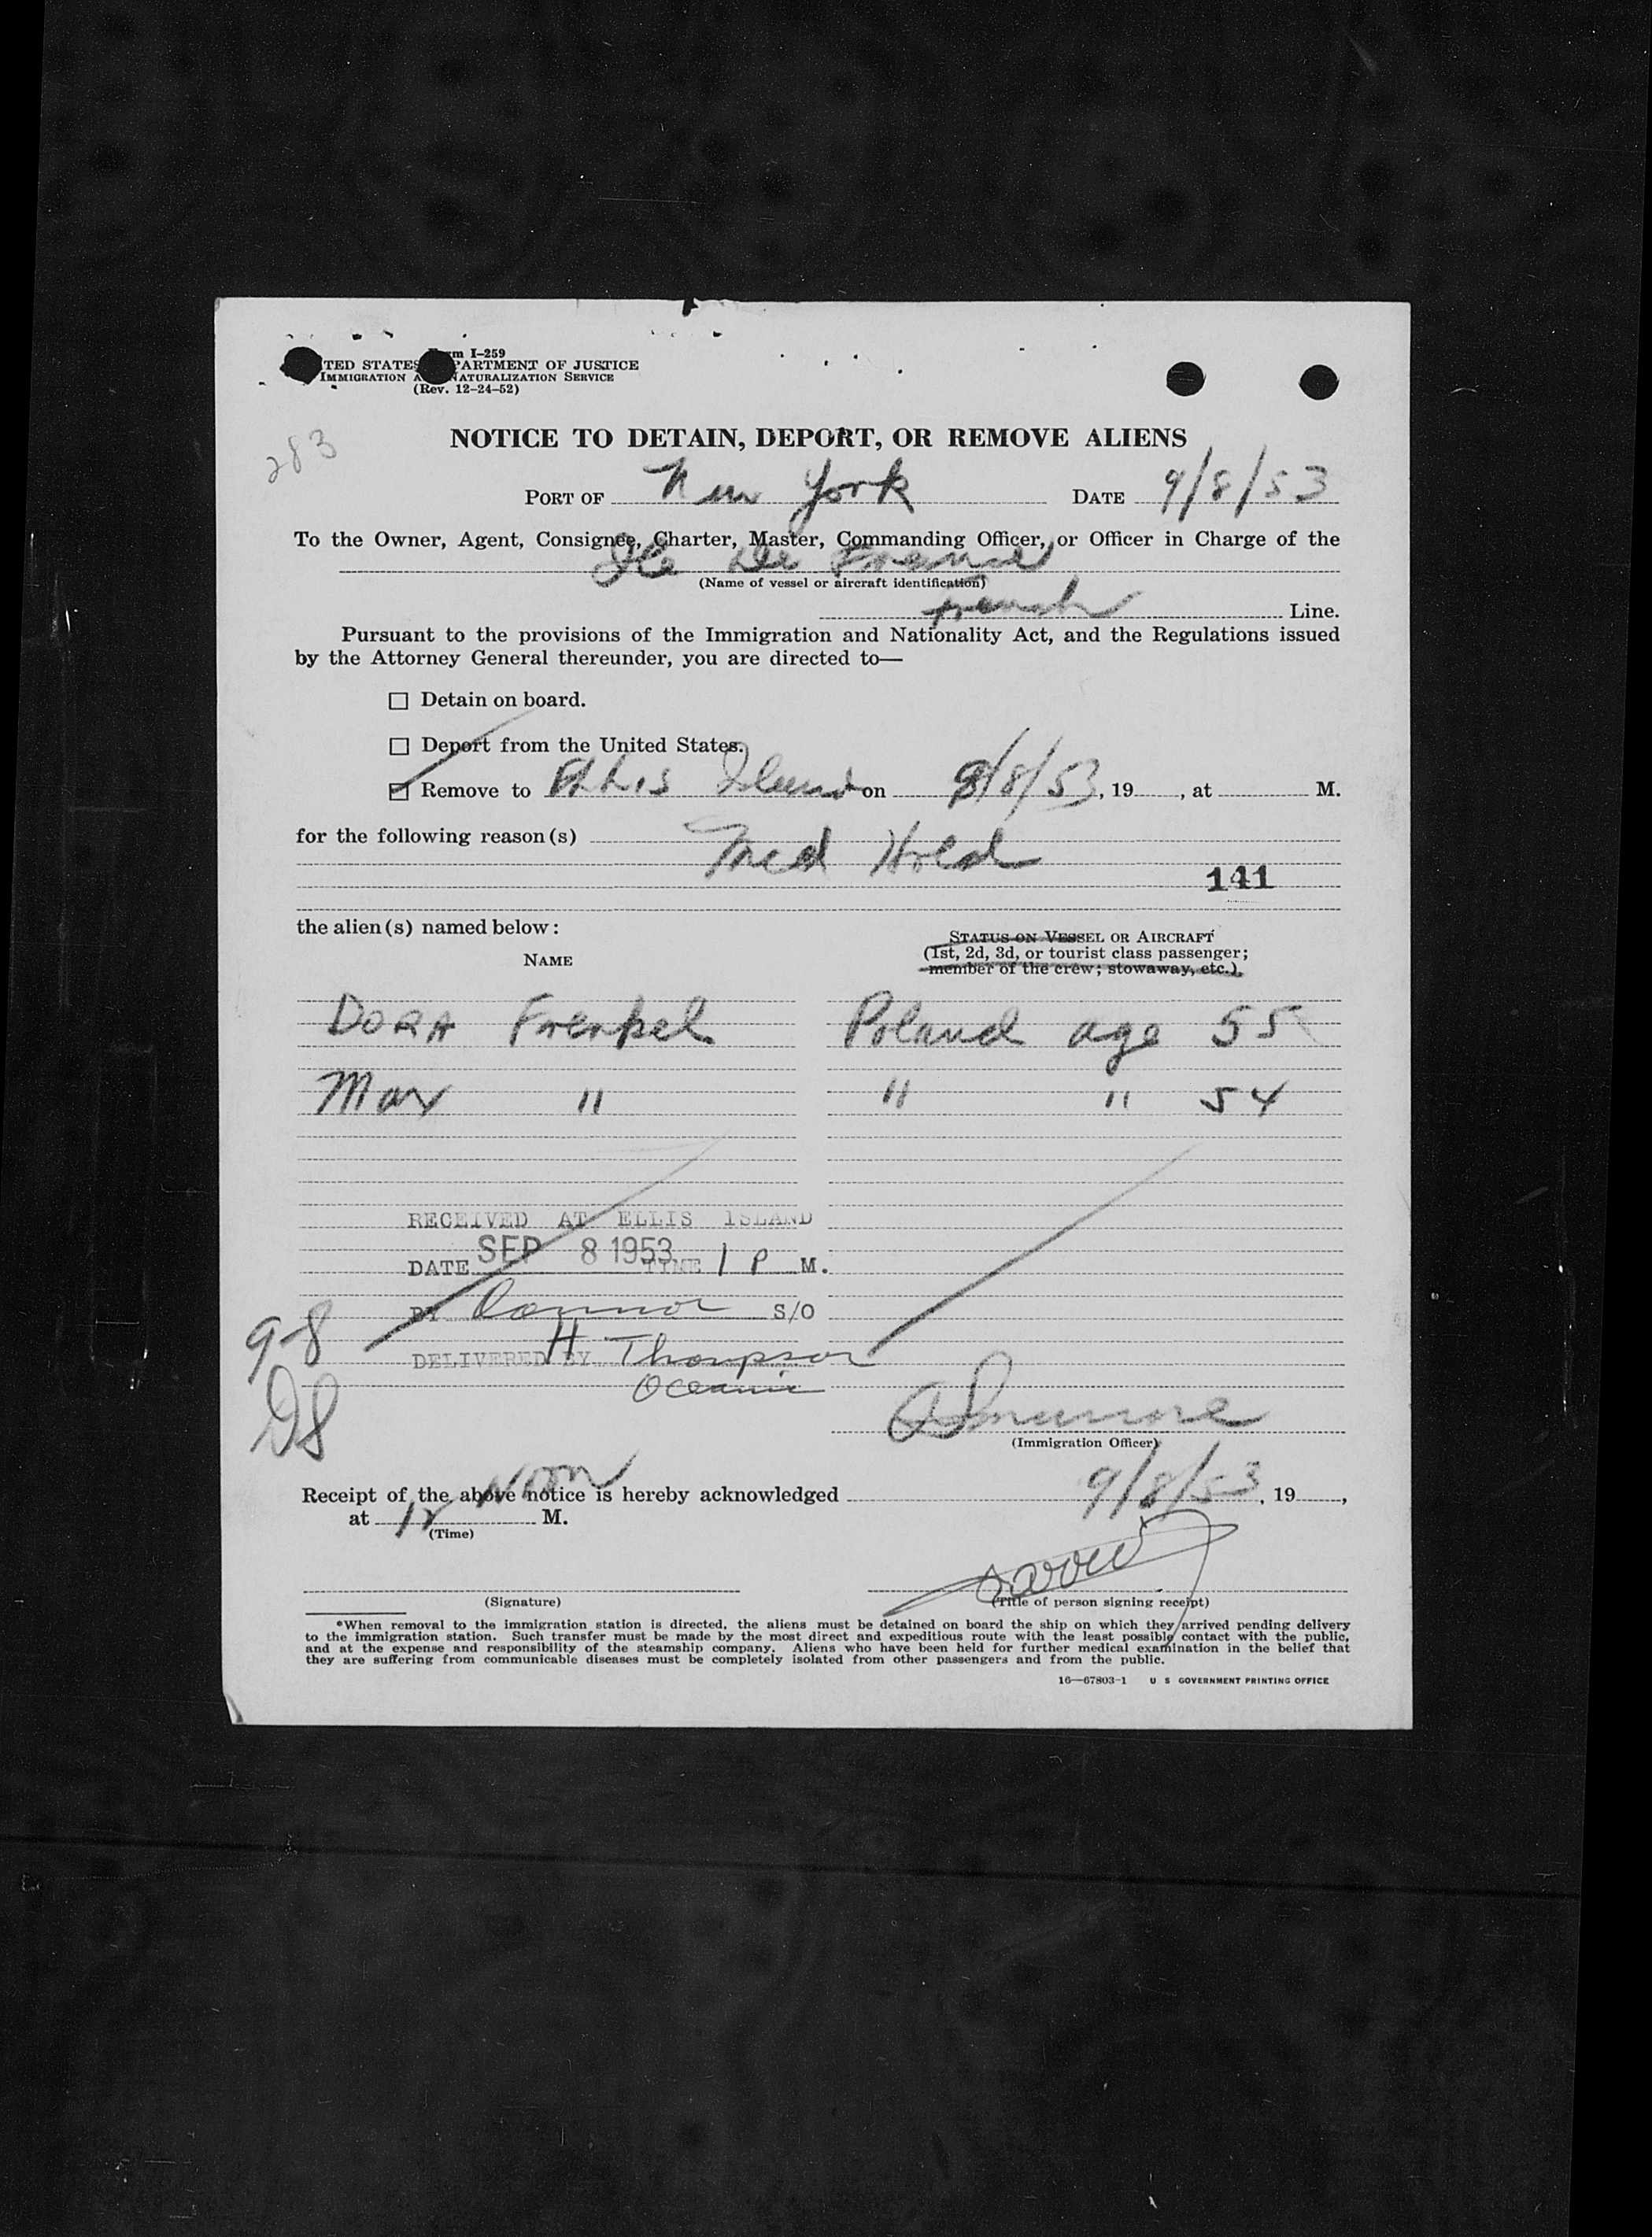 Form I-259
UNITED STATES DEPARTMENT OF JUSTICE
IMMIGRATION AND NATURALIZATION SERVICE
(Rev. 12-24-52)
283
NOTICE TO DETAIN, DEPORT, OR REMOVE ALIENS
PORT OF New York DATE 9/8/53
To the Owner, Agent, Consignee, Charter, Master, Commanding Officer, or Officer in Charge of the
Ile De France
(Name of vessel or aircraft identification)
French Line.
Pursuant to the provisions of the Immigration and Nationality Act, and the Regulations issued
by the Attorney General thereunder, you are directed to—
☐ Detain on board.
☐ Deport from the United States.
☑ Remove to Ellis Island on 9/8/53, 19, at M.
for the following reason(s) Med Hold
141
the alien(s) named below:
STATUS ON VESSEL OR AIRCRAFT
(1st, 2d, 3d, or tourist class passenger;
member of the crew; stowaway, etc.)
NAME
DORA Frenkel Poland age 55
Max " " " 54
RECEIVED AT ELLIS ISLAND
DATE SEP 8 1953 TIME 1 P M.
BY Connor S/O
9-8
DELIVERED BY H Thompson
Oceanic
DS
(Immigration Officer)
Receipt of the above notice is hereby acknowledged 9/8/53, 19,
at 12 Noon M.
(Time)
(Signature) (Title of person signing receipt)
*When removal to the immigration station is directed, the aliens must be detained on board the ship on which they arrived pending delivery
to the immigration station. Such transfer must be made by the most direct and expeditious route with the least possible contact with the public,
and at the expense and responsibility of the steamship company. Aliens who have been held for further medical examination in the belief that
they are suffering from communicable diseases must be completely isolated from other passengers and from the public.
16—67803-1 U S GOVERNMENT PRINTING OFFICE